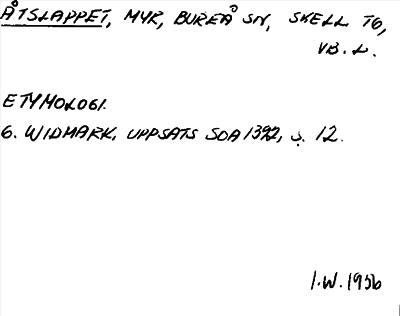 ÅTSLAPPET, MYR, BUREÅ SN, SKELL TG,
VB. L.
ETYMOLOGI.
G. WIDMARK, UPPSATS SOA 1392, s. 12.
I.W. 1956